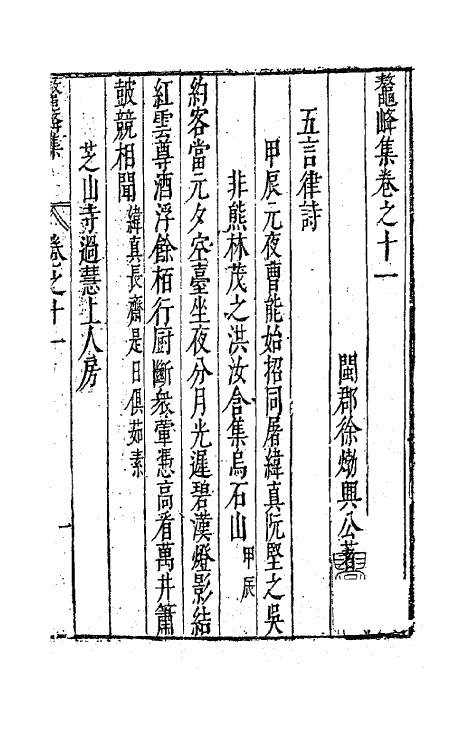 鼇峰集卷之十一
閩郡徐𤊹興公著
五言律詩
甲辰元夜曹能始招同屠緯真阮堅之吳
非熊林茂之洪汝含集烏石山甲辰
約客當元夕空臺坐夜分月光遲碧漢燈影結
紅雲尊酒浮餘栢行厨斷衆葷憑高看萬井簫
鼓競相聞緯真長齋是日俱茹素
芝山寺過慧上人房
鼇峰集
卷之十一
一